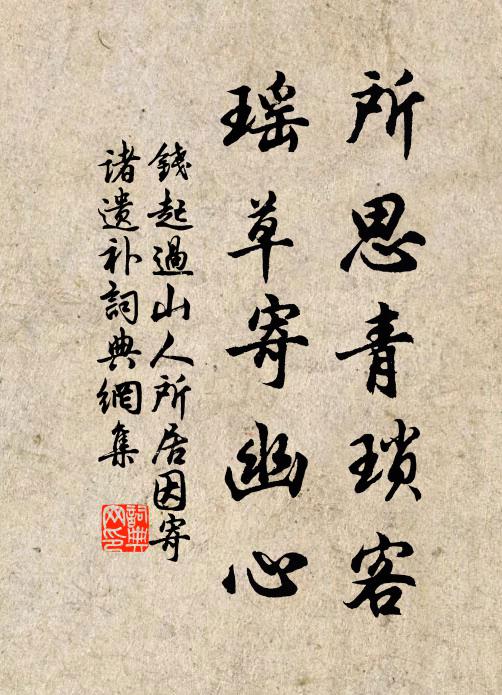 所思青瑣客
瑶草寄幽心
錢起過山人所居因寄
诸遗补詞典網集
詞典網印